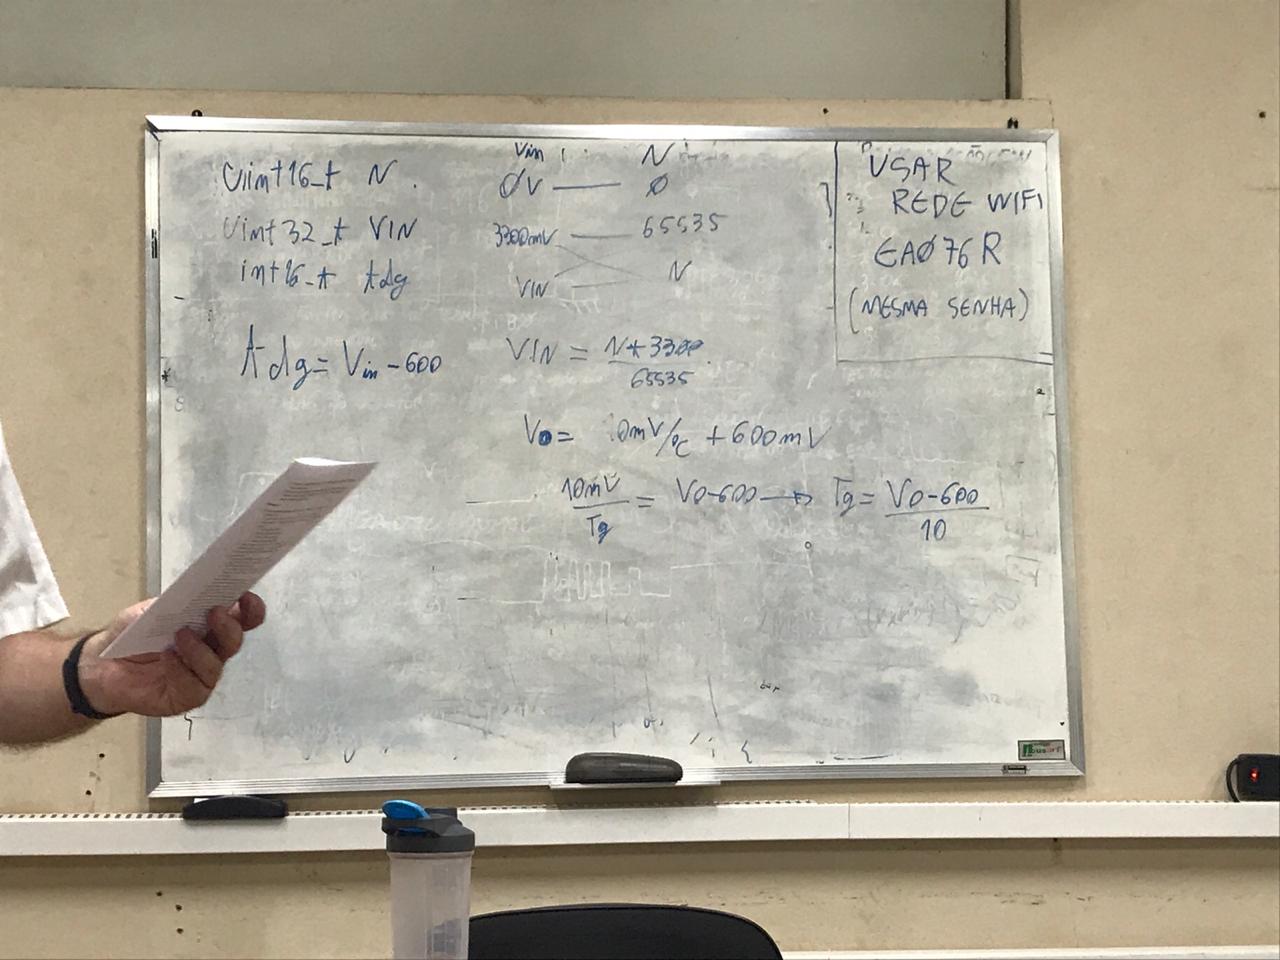 Uint16_t N.
Uint32_t VIN
int16_t tdg
tdg = Vin - 600
Vin N
0V — 0
3300mV — 65535
VIN — N
VIN = N * 3300
65535
VO = 10mV/°C + 600mV
10mV
Tg
= VO-600 → Tg = VO-600
10
USAR
REDE WIFI
EA076R
(MESMA SENHA)